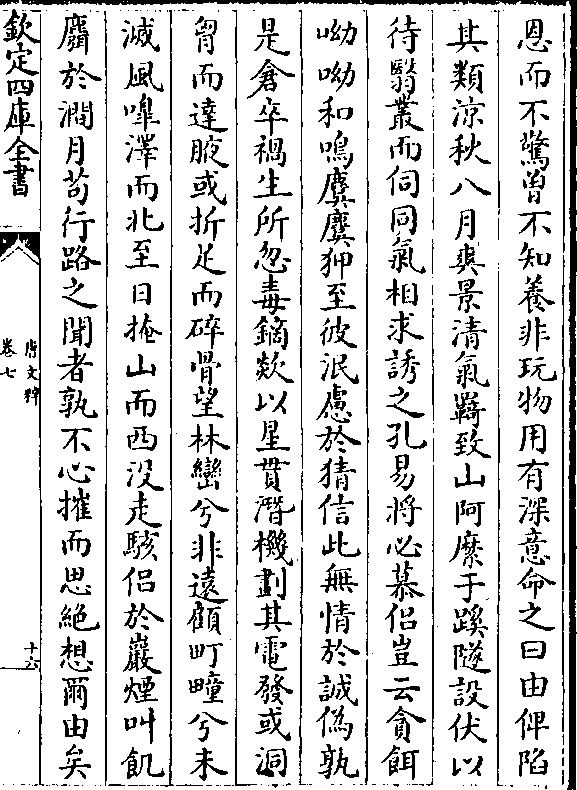 恩而不驚曽不知養非玩物用有深意命之曰由俾陷
其類涼秋八月爽景清氣羇致山阿縻于蹊隧設伏以
待翳叢而伺同氣相求誘之孔易将必慕侣豈云貪餌
呦呦和鳴麌麌狎至彼泯慮於猜信此無情於誠偽孰
是倉卒禍生所忽毒鏑欻以星貫潛機劃其電發或洞
胷而達腋或折足而碎骨望林巒兮非遠顧町畽兮未
滅風嘷澤而北至日掩山而西没走駭侣於巖煙叫飢
麛於澗月茍行路之聞者孰不心摧而思絶想爾由矣
欽定四庫全書
唐文粹
卷七
十六